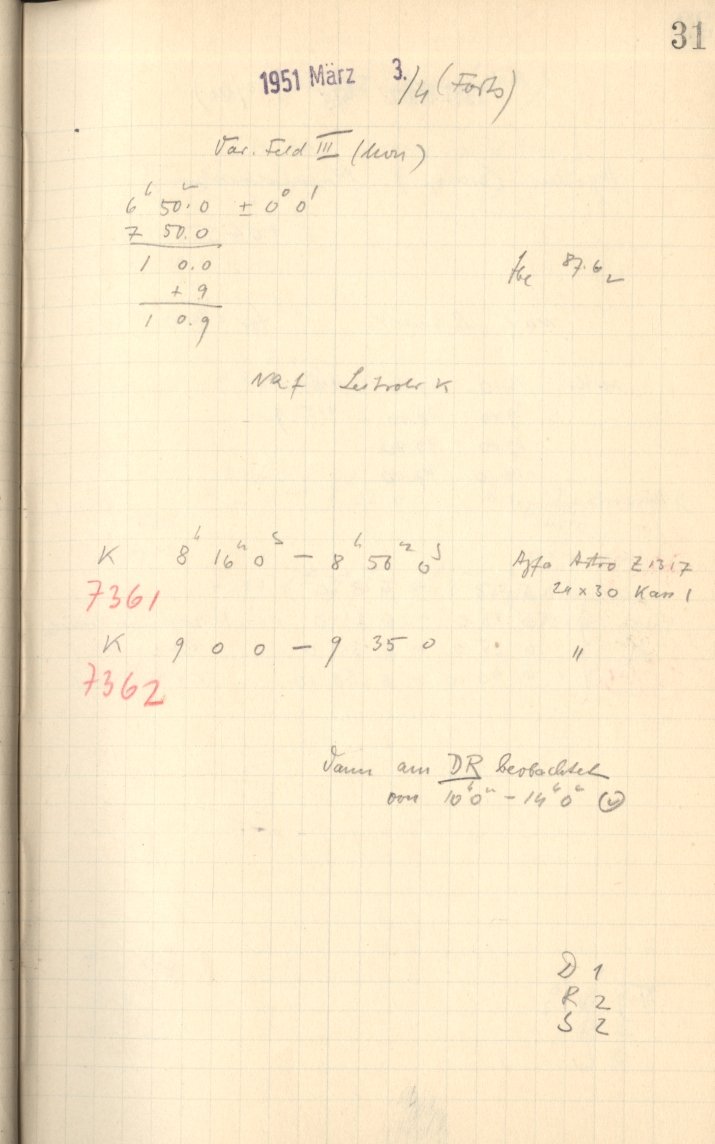 31
1951 März 3./4 (Forts)
Var. Feld III (Mon)
6h 50.0 ± 0° 0'
7 50.0
1 0.0
+ 9
1 0.9
87.6
Leitrohr K
K 8h 16m 0s — 8h 56m 0s
Agfa Astro Z
7361
24 x 30 Kass 1
K 9 0 0 — 9 35 0 "
7362
Dann am DR beobachtet
von 10h 0m - 14h 0m
D 1
R 2
S 2